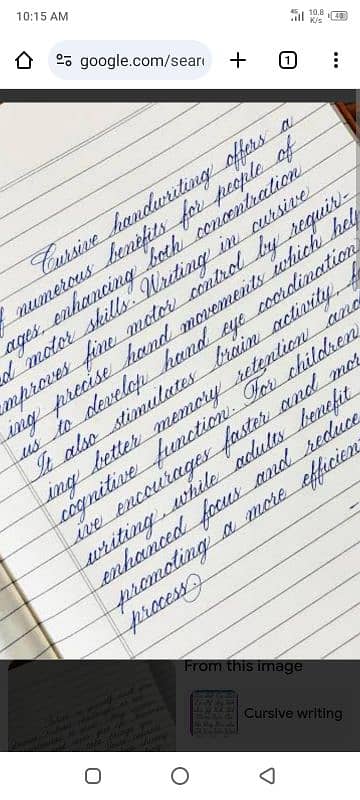 10:15 AM
4G 10.8 K/s 40
google.com/sear
1
Cursive handwriting offers a
numerous benefits for people of
ages, enhancing both concentration
motor skills. Writing in cursive
improves fine motor control by requir-
ing precise hand movements which help
us to develop hand eye coordination
It also stimulates brain activity,
ing better memory retention and
cognitive function. For children
ive encourages faster and mor
writing, while adults benefit
enhanced focus and reduce
promoting a more efficien
process.
From this image
Cursive writing